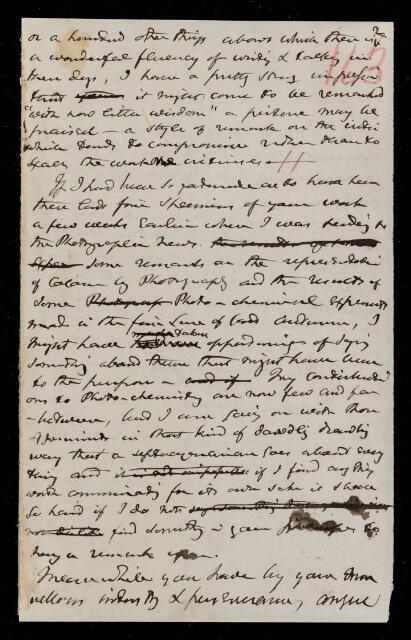 or a hundred other things about which there is
a wonderful fluency of writing & talking in
these days. I have a pretty strong
that it might come to be remarked
"with how little wisdom" a picture may be
praised — a style of remark on the
which tends to compromise rather than to
the work criticised.
163
If I had been so fortunate as to have seen
these last four specimens of your work
a few weeks earlier when I was sending to
the Photographic News
some remarks on the representation
of Colour by Photography and the results of
some Photo-chemical experiments
made in the fine time of last autumn, I
might have taken opportunity of saying
something about them that might have been
to the purpose — My contributions
to Photo-chemistry are now few and far
between, and I am going on with those
in that kind of dawdly
way that a septuagenarian goes about every
thing and if I find anything
worth communicating for its own sake it shall
go hard if I do not
find something in your to
hang a remark upon.
Meanwhile you have by your mar
vellous industry & perseverance,